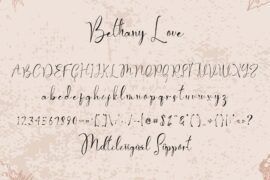 Bethany Love
ABCDEFGHIJKLMNOPQRSTUVWXYZ
abcdefghijklmnopqrstuvwxyz
1234567890
Multilingual Support